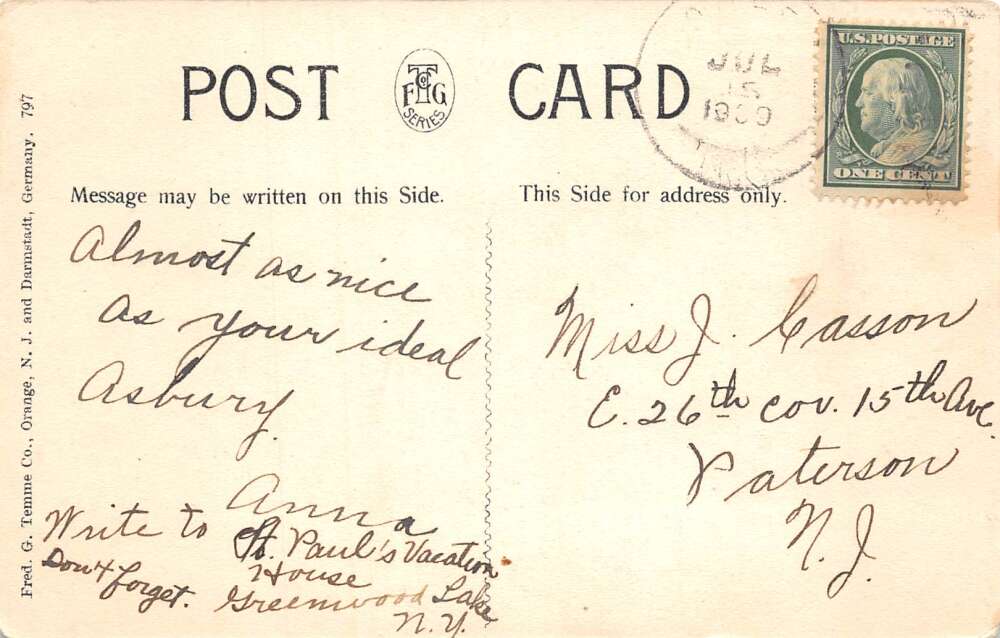 POST CARD
F T Co G
SERIES
JUL
15
1909
U.S. POSTAGE
ONE CENT
Message may be written on this Side.
This Side for address only.
Almost as nice
as your ideal
Asbury.
Anna
Write to St. Paul's Vacation
House
Don't forget.
Greenwood Lake
N.Y.
Miss J. Casson
E. 26th cov. 15th Ave.
Paterson
N.J.
Fred. G. Temme Co., Orange, N. J. and Darmstadt, Germany. 797